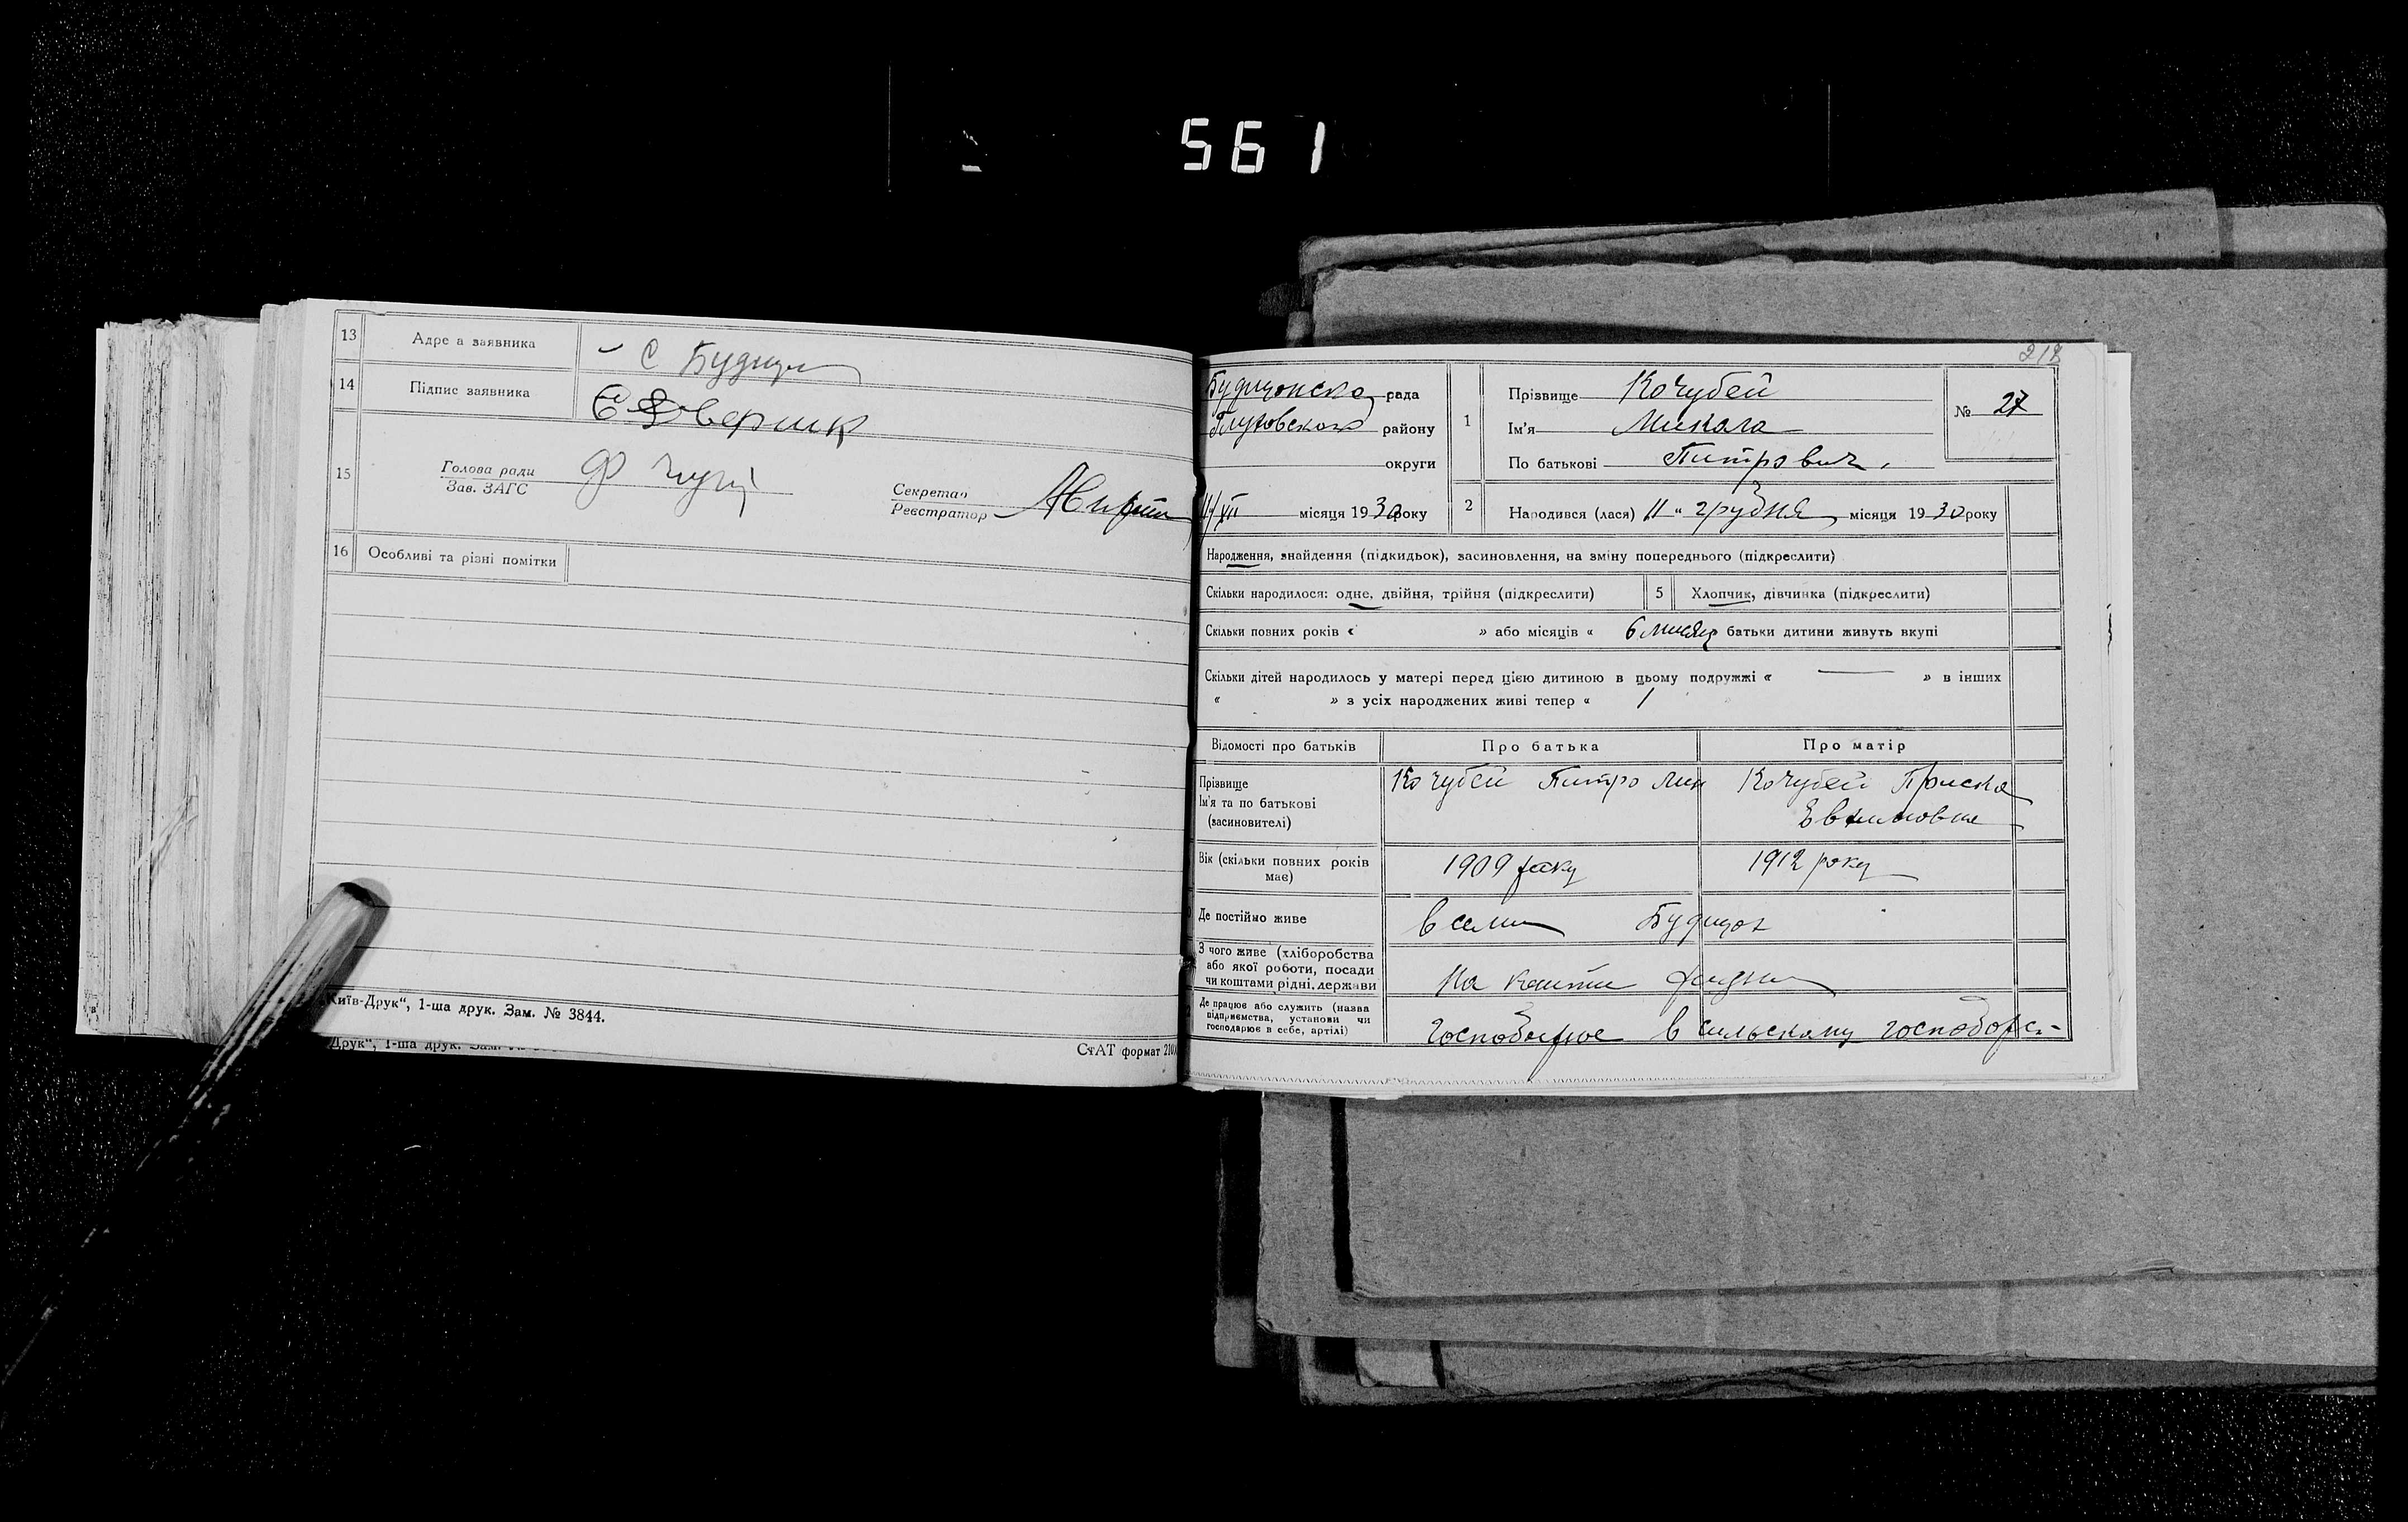 561
13 Адре а заявника с Будищ
14 Підпис заявника
15 Голова ради
Зав. ЗАГС
Секретар
Реєстратор
16 Особливі та різні помітки
„Київ-Друк“, 1-ша друк. Зам. № 3844.
Друк“, 1-ша друк.
СтАТ формат 210
218
рада
району
округи
1 Прізвище Кочубей
Ім'я Микола
По батькові Питрович
№ 27
11/XII місяця 1930 року
2 Народився (лася) 11 „ грудня місяця 1930 року
Народження, знайдення (підкидьок), засиновлення, на зміну попереднього (підкреслити)
Скільки народилося: одне, двійня, трійня (підкреслити)
5 Хлопчик, дівчинка (підкреслити)
Скільки повних років « » або місяців « 6 батьки дитини живуть вкупі
Скільки дітей народилось у матері перед цією дитиною в цьому подружжі « — » в інших
« » з усіх народжених живі тепер « 1
Відомості про батьків Про батька Про матір
Прізвище
Ім'я та по батькові
(засиновителі)
Кочубей Питро Мик
Кочубей Приська
Евхимовна
Вік (скільки повних років
має)
1909 року
1912 року
Де постійно живе в сели Будищах
З чого живе (хліборобства
або якої роботи, посади
чи коштами рідні, держави
На кошти ридни
Де працює або служить (назва
підприємства, установи чи
господарює в себе, артілі)
господарює в сильскому господарс-